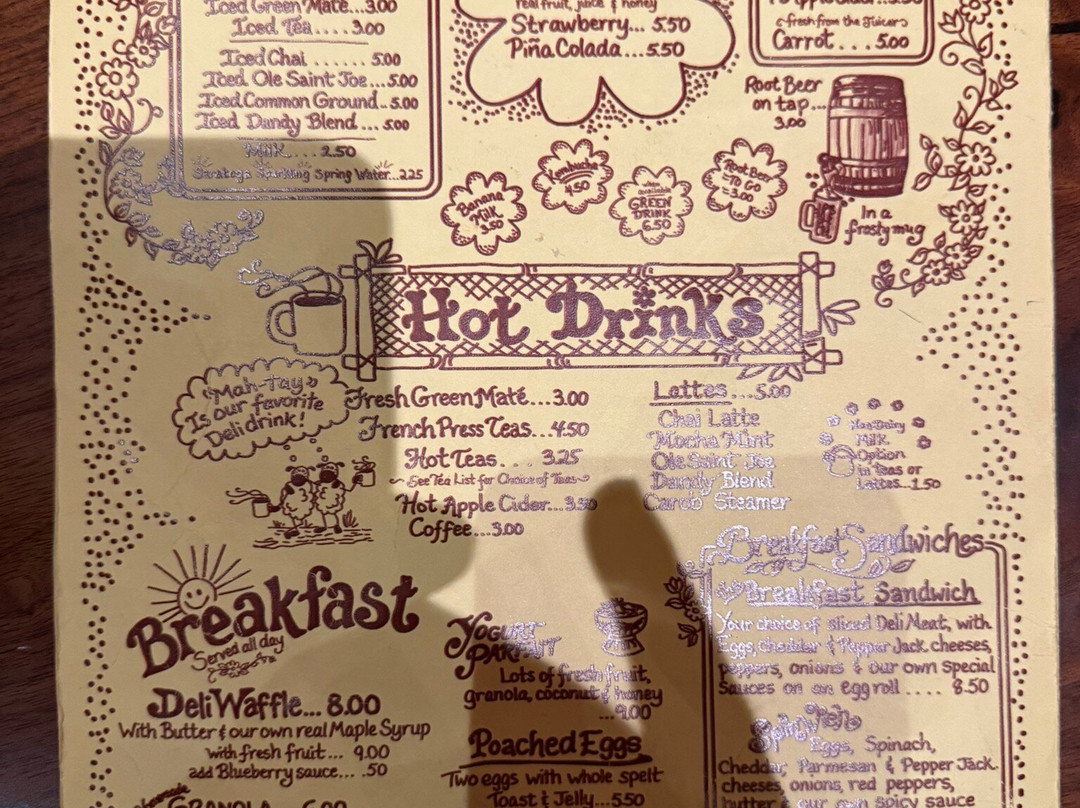 Iced Green Maté...3.00
Iced Tea....3.00
Iced Chai ....... 5.00
Iced Ole Saint Joe...5.00
Iced Common Ground..5.00
Iced Dandy Blend...5.00
Milk....2.50
Saratoga Sparkling Spring Water...2.25
real fruit, juice & honey
Strawberry... 5.50
Piña Colada...5.50
~fresh from the Juicer~
Carrot...5.00
Root Beer
on tap...
3.00
In a
frosty mug
Banana
Milk
3.50
Kombucha
4.50
when
available
GREEN
DRINK
6.50
Root Beer
TO GO
3.00
Hot Drinks
"Mah-Tay"
Is our favorite
Deli drink!
Fresh Green Maté...3.00
French Press Teas...4.50
Hot Teas... 3.25
~See Tea List for Choice of Teas~
Hot Apple Cider...3.50
Coffee...3.00
Lattes...5.00
Chai Latte
Mocha Mint
Ole Saint Joe
Dandy Blend
Carob Steamer
Non-Dairy
Milk
Option
in Teas or
Lattes...1.50
Breakfast
Served all day
Deli Waffle... 8.00
With Butter & our own real Maple Syrup
with fresh fruit... 9.00
add Blueberry sauce... .50
GRANOLA
Yogurt
Parfait
Lots of fresh fruit,
granola, coconut & honey
...9.00
Poached Eggs
Two eggs with whole spelt
Toast & Jelly...5.50
Breakfast Sandwiches
Breakfast Sandwich
Your choice of sliced Deli Meat, with
Eggs, Cheddar & Pepper Jack cheeses,
peppers, onions & our own special
Sauces on an egg roll .... 8.50
Eggs, Spinach,
Cheddar, Parmesan & Pepper Jack
cheeses, onions, red peppers,
butter & our own spicy sauce